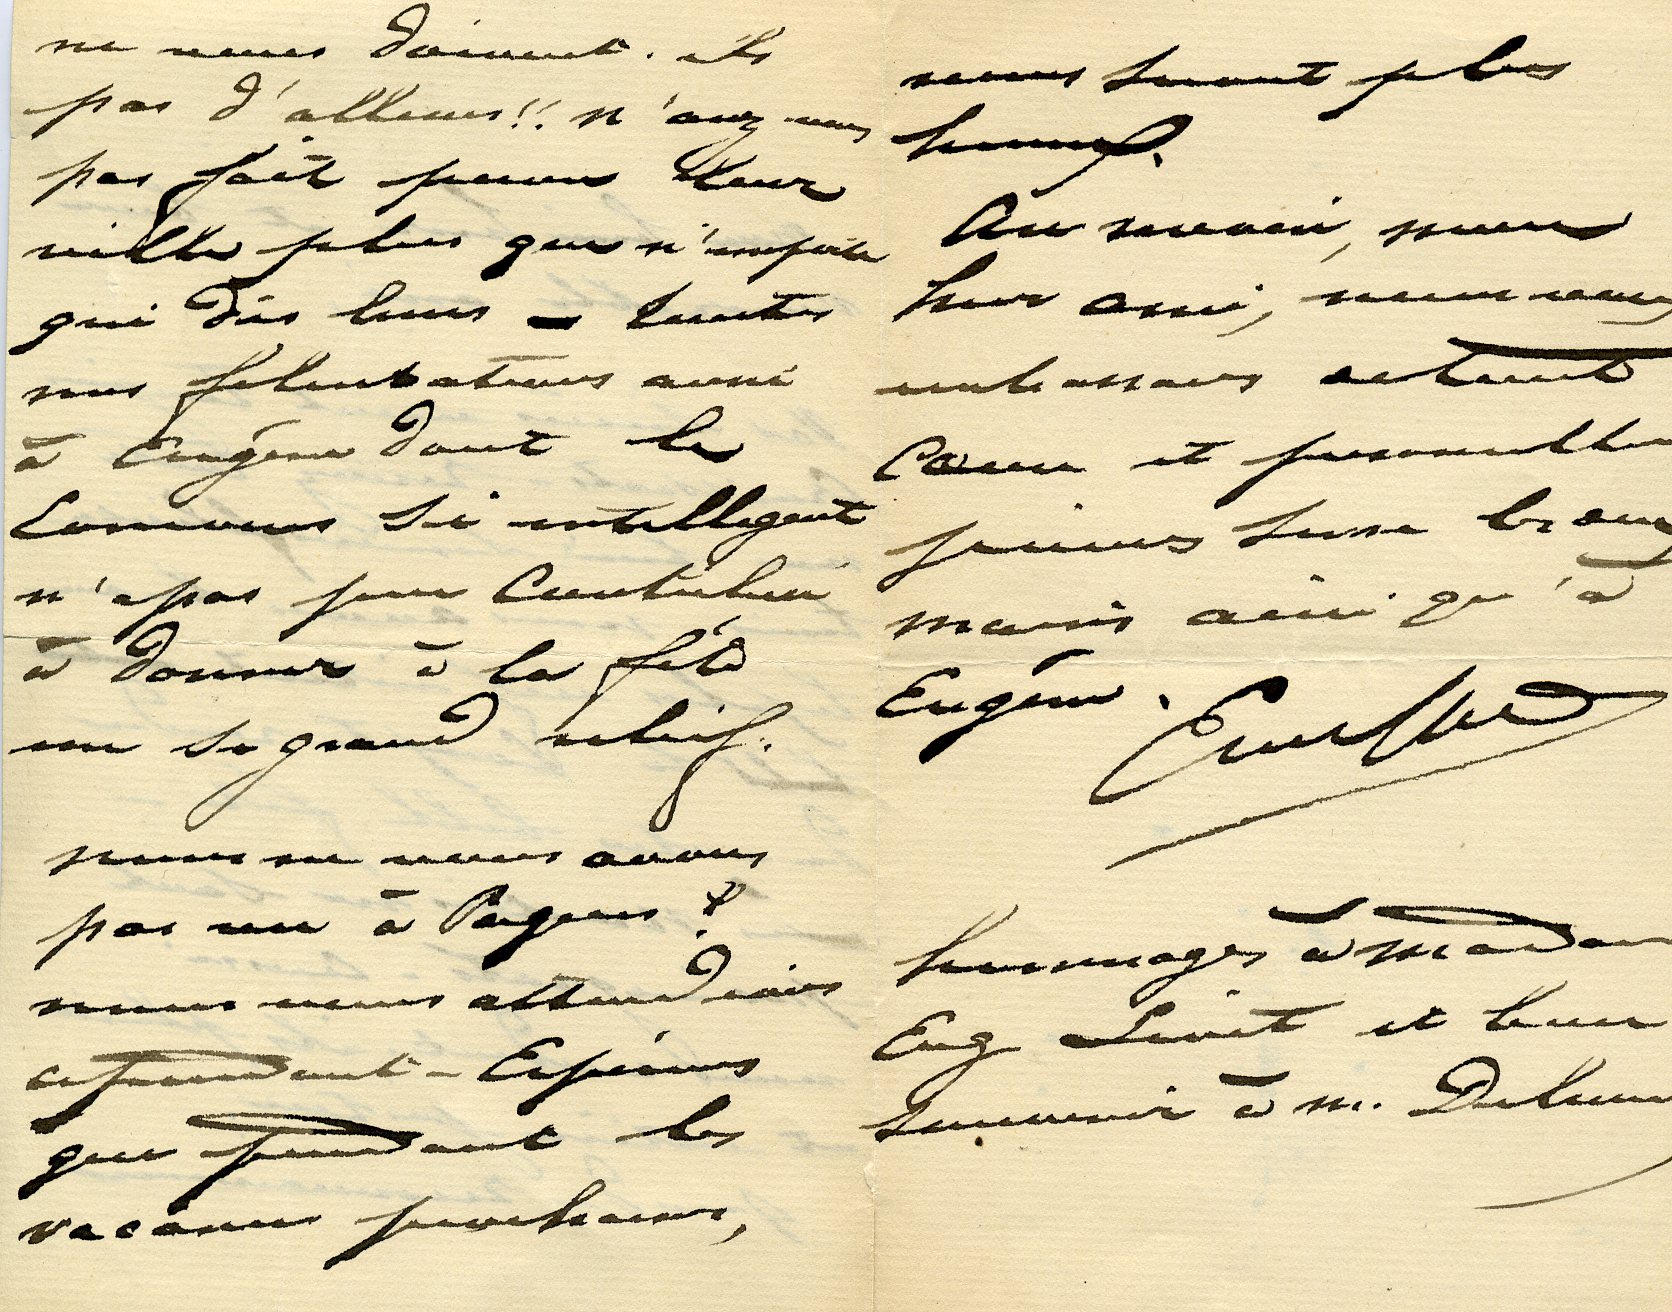 ne vous doivent-ils
pas d'ailleurs!! n'avez vous
pas fait pour leur
ville plus que n'importe
qui d'is leurs - toutes
nos félicitations aussi
à Eugène dont le
concours si intelligent
n'a pas peu contribué
à donner à la fête
un si grand relief.
nous ne vous avons
pas vu à Pageus ?
nous vous attendions
cependant - Espérons
que pendant les
vacances prochaines,
nous serons plus
heureux.
Au revoir, mon
bon ami, nous vous
embrassons de tout
Coeur et
serre les deux
mains ainsi qu'à
Eugène.
hommages à Madame
Eug Livet et bon
souvenir à M.